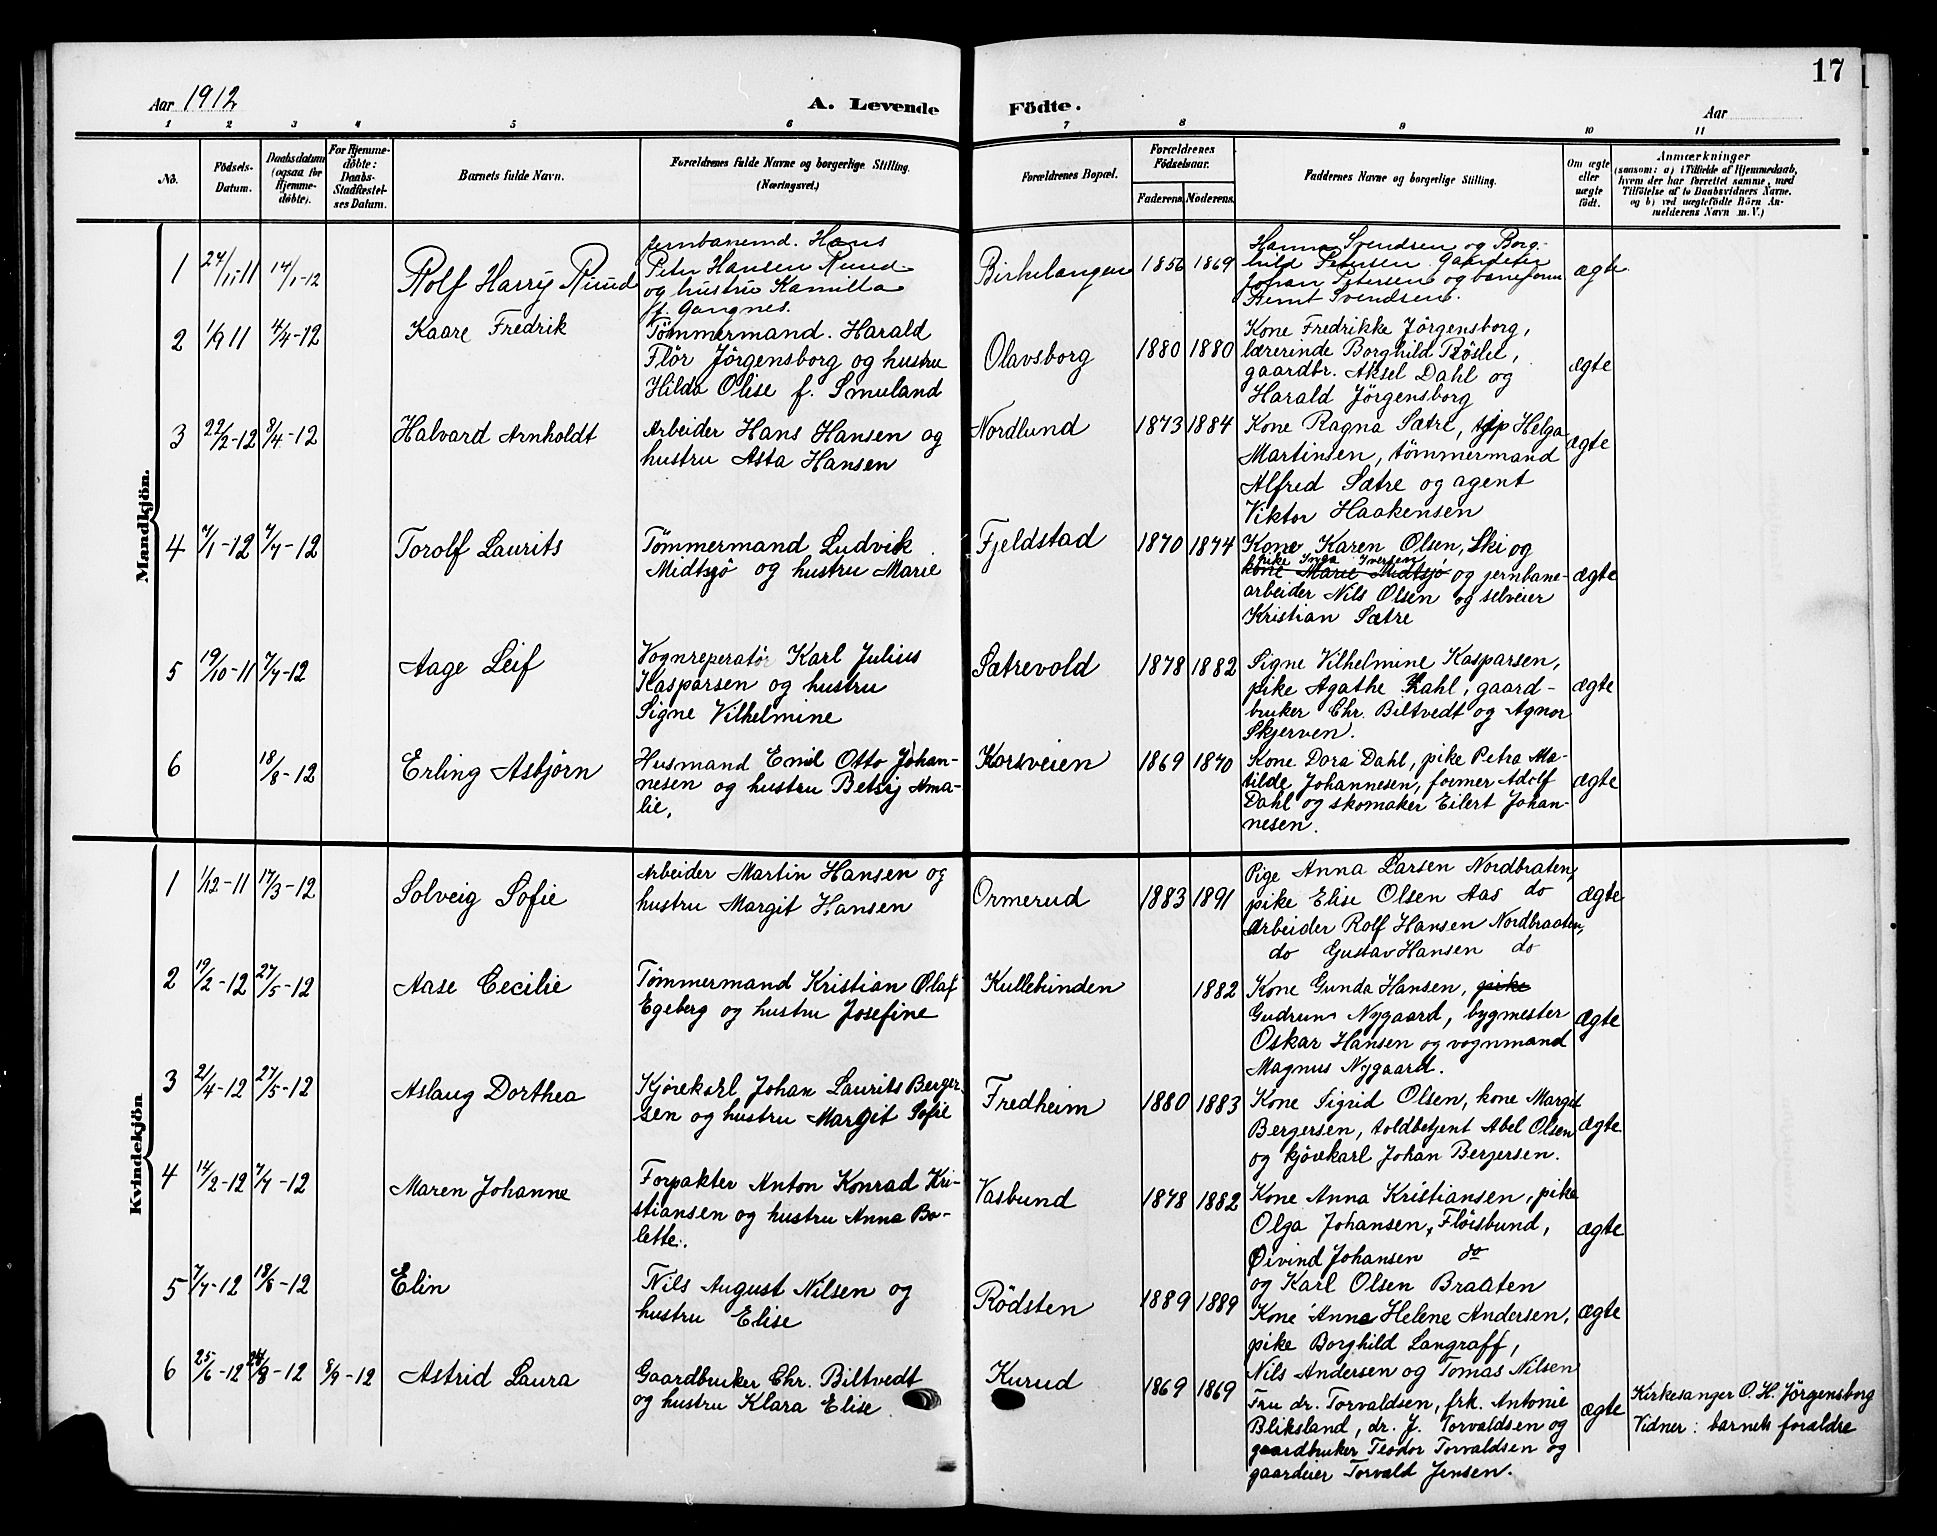 17
Aar 1912
A. Levende Födte.
Aar
1 2 3 4 5 6 7 8 9 10 11
No.
Födsels-Datum.
Daabsdatum (ogsaa for Hjemmedöbte).
For Hjemmedöbte: Daabs-Stadfæstelses Datum.
Barnets fulde Navn.
Forældrenes fulde Navne og borgerlige Stilling. (Næringsvei.)
Forældrenes Bopæl.
Forældrenes Födselsaar.
Faderens. Moderens.
Faddernes Navne og borgerlige Stilling.
Om ægte eller uægte födt.
Anmærkninger
(saasom: a) i Tilfælde af Hjemmedaab, hvem der har forrettet samme, med Tilföielse af to Daabsvidners Navne. og b) ved uægtefödte Börn Anmelderens Navn m. V.)
Mandkjön.
1
24/11-11
14/1-12
Rolf Harry Ruud
jernbanemd. Hans
Peter Hansen Ruud
og hustru Kamilla
f. Gangnes.
Birkelangen
1856 1869
Hanna Svendsen og Borg-
hild Petersen. Gaardeier
Johan Petersen og baneform
Bernt Svendsen.
ægte
2
1/9 11
4/4-12
Kaare Fredrik
Tømmermand. Harald
Flör Jörgensborg og hustru
Hilda Olise f. Smuland
Olavsborg
1880 1880
Kone Fredrikke Jörgensborg,
lærerinde Borghild Röslie,
gaardbr. Aksel Dahl og
Harald Jörgensborg
ægte
3
22/2-12
8/4-12
Halvard Arnholdt
Arbeider Hans Hansen og
hustru Asta Hansen
Nordlund
1873 1884
Kone Ragna Sætre, tjp Helga
Martinsen, tömmermand
Alfred Sætre og agent
Viktor Haakensen
ægte
4
7/1-12
7/4-12
Torolf Laurits
Tømmermand Ludvik
Midtsjö og hustru Marie
Fjeldstad
1870 1874
Kone Karen Olsen, Ski og
pike Inga Iversen
kone Marie Midtsjø og jernbane-
arbeider Nils Olsen og selveier
Kristian Sætre
ægte
5
19/10-11
7/4-12
Aage Leif
Vognreperatør Karl Julius
Kasparsen og hustru
Signe Vilhelmine
Sætrevold
1878 1882
Signe Vilhelmine Kasparsen,
pike Agathe Dahl, gaard-
bruker Chr. Biltvedt og Agnor
Skjerven.
ægte
6
18/8-12
Erling Asbjörn
Husmand Emil Otto Johan-
nesen og hustru Betsy Ama-
lie,
Korsveien
1869 1870
Kone Dora Dahl, pike Petra Ma-
tilde Johannesen, former Adolf
Dahl og skomaker Eilert Johan-
nesen.
ægte
Kvindekjön
1
1/12-11
17/3-12
Solveig Sofie
Arbeider Martin Hansen og
hustru Margit Hansen
Ormerud
1883 1891
Pige Anna Larsen Nordbraten,
pike Elise Olsen Aas do
Arbeider Rolf Hansen Nordbraaten,
do Gustav Hansen do
ægte
2
19/2-12
27/5-12
Aase Cecilie
Tömmermand Kristian Olaf
Egeberg og hustru Josefine
Kullebunden
1882
Kone Gunda Hansen, pike
Gudrun Nygaard, bygmester
Oskar Hansen og vognmand
Magnus Nygaard.
ægte
3
21/4-12
27/5-12
Aslaug Dorthea
Kjørekarl Johan Laurits Berger-
sen og hustru Margit Sofie
Fredheim
1880 1883
Kone Sigrid Olsen, kone Margit
Bergersen, toldbetjent Abel Olsen
og kjørekarl Johan Bergersen.
ægte
4
14/2-12
7/4-12
Maren Johanne
Forpakter Anton Konrad Kri-
stiansen og hustru Anna Bo-
lette.
Vasbund
1878 1882
Kone Anna Kristiansen, pike
Olga Johansen, Flöisbund,
Øivind Johansen do
og Karl Olsen Braaten
ægte
5
7/4-12
18/8-12
Elin
Nils August Nilsen og
hustru Elise
Rödsten
1889 1889
Kone Anna Helene Andersen,
pike Borghild Langraff,
Nils Andersen og Tomas Nilsen
ægte
6
25/6-12
24/8-12
8/9-12
Astrid Laura
Gaardbruker Chr. Biltvedt
og hustru Klara Elise
Kurud
1869 1869
Fru dr. Torvaldsen, frk. Antonie
Bliksland, dr. J. Torvaldsen og
gaardbruker Teodor Torvaldsen og
gaardeier Torvald Jensen.
ægte
Kirkesanger O. H. Jörgensborg
Vidner: barnets foraldre